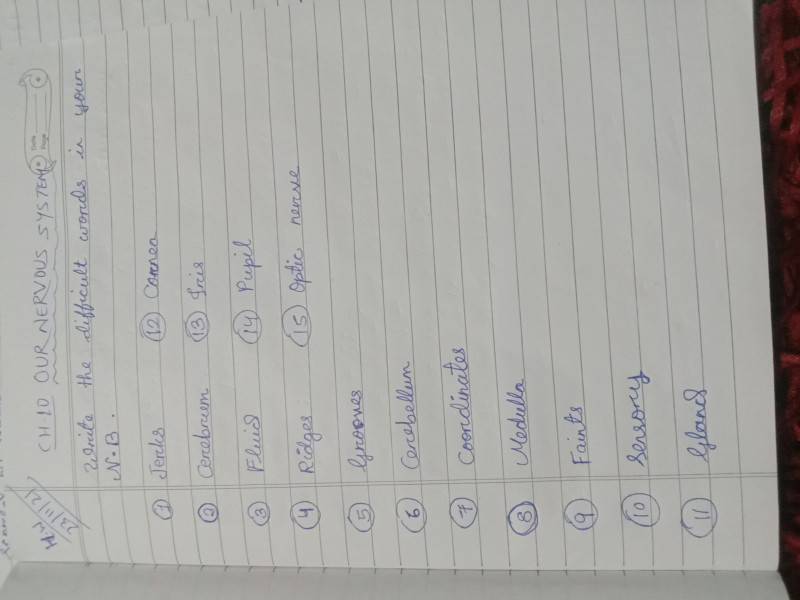 CH 10 OUR NERVOUS SYSTEM
Date
Page
Write the difficult words in your
N.B.
1 Jerks
2 Cerebrum
3 Fluid
4 Ridges
5 Grooves
6 Cerebellum
7 Coordinates
8 Medulla
9 Faints
10 Sensory
11 Gland
12 Cornea
13 Iris
14 Pupil
15 Optic nerve